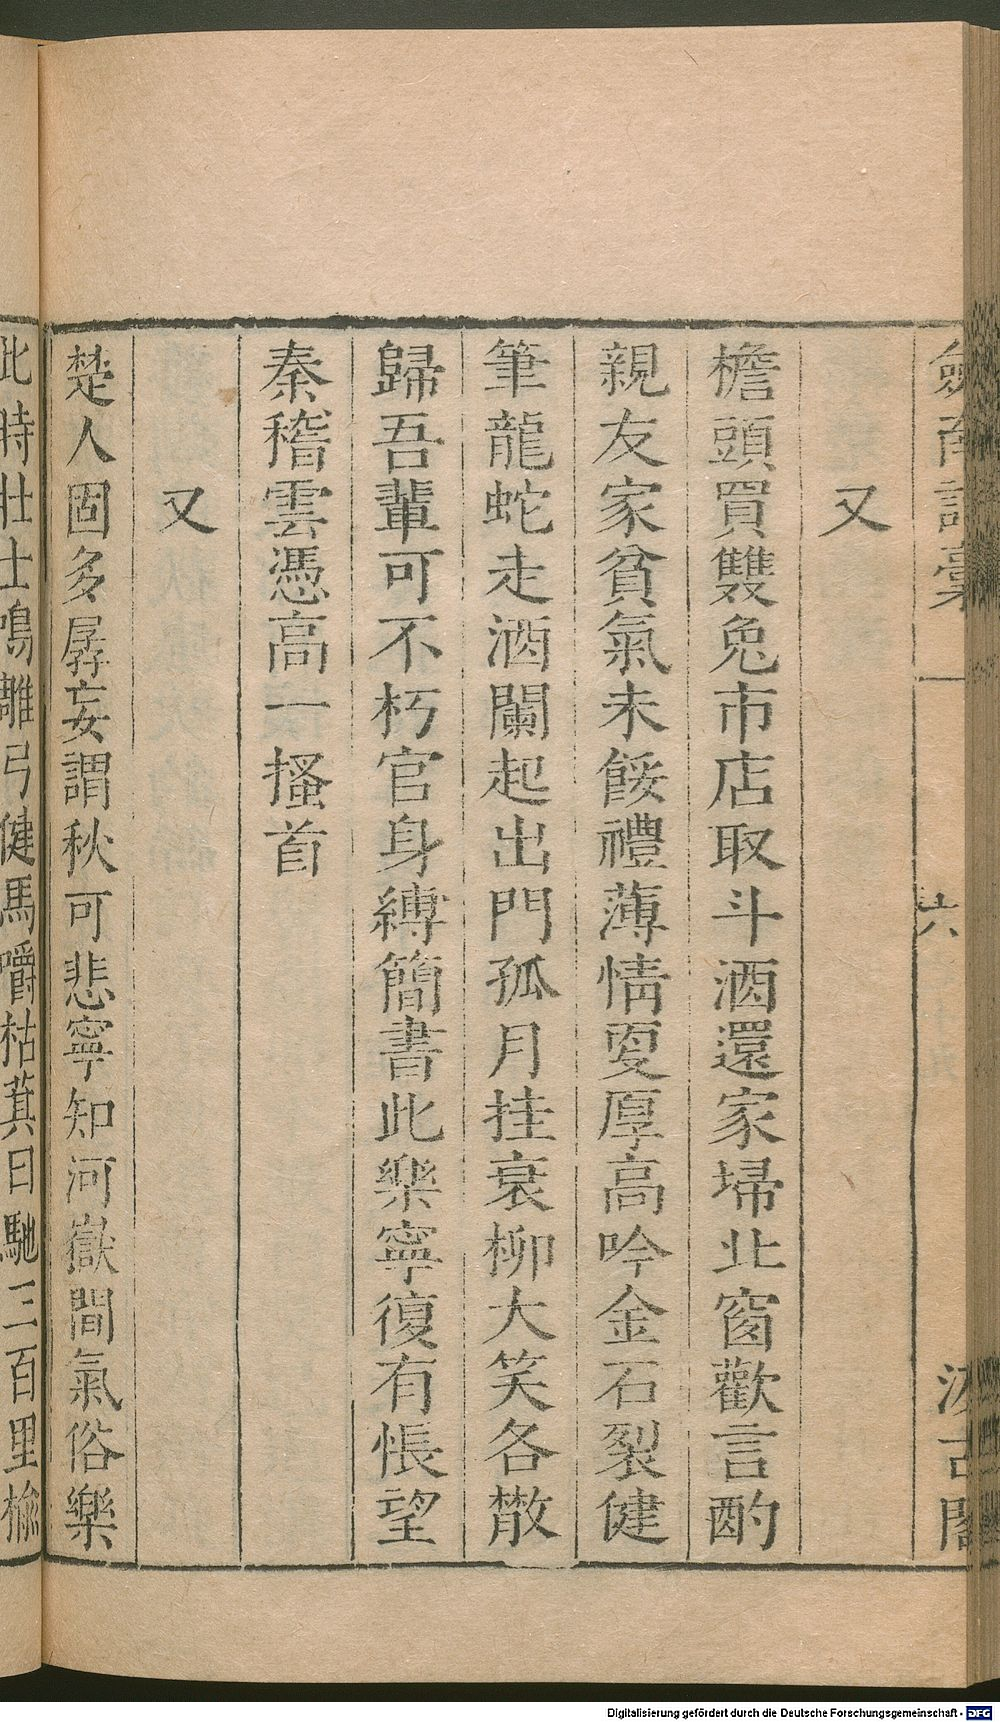 劍南詩稾 一 六 汲古閣
又
檐頭買雙兔市店取斗酒還家埽北窗歡言酌
親友家貧氣未餒禮薄情更厚高吟金石裂健
筆龍蛇走酒闌起出門孤月挂衰柳大笑各散
歸吾輩可不朽官身縛簡書此樂寧復有悵望
秦稽雲憑高一搔首
又
楚人固多孱妄謂秋可悲寧知河嶽間氣俗樂
此時壯士鳴雕弓健馬嚼枯萁日馳三百里榆
Digitalisierung gefördert durch die Deutsche Forschungsgemeinschaft - DFG